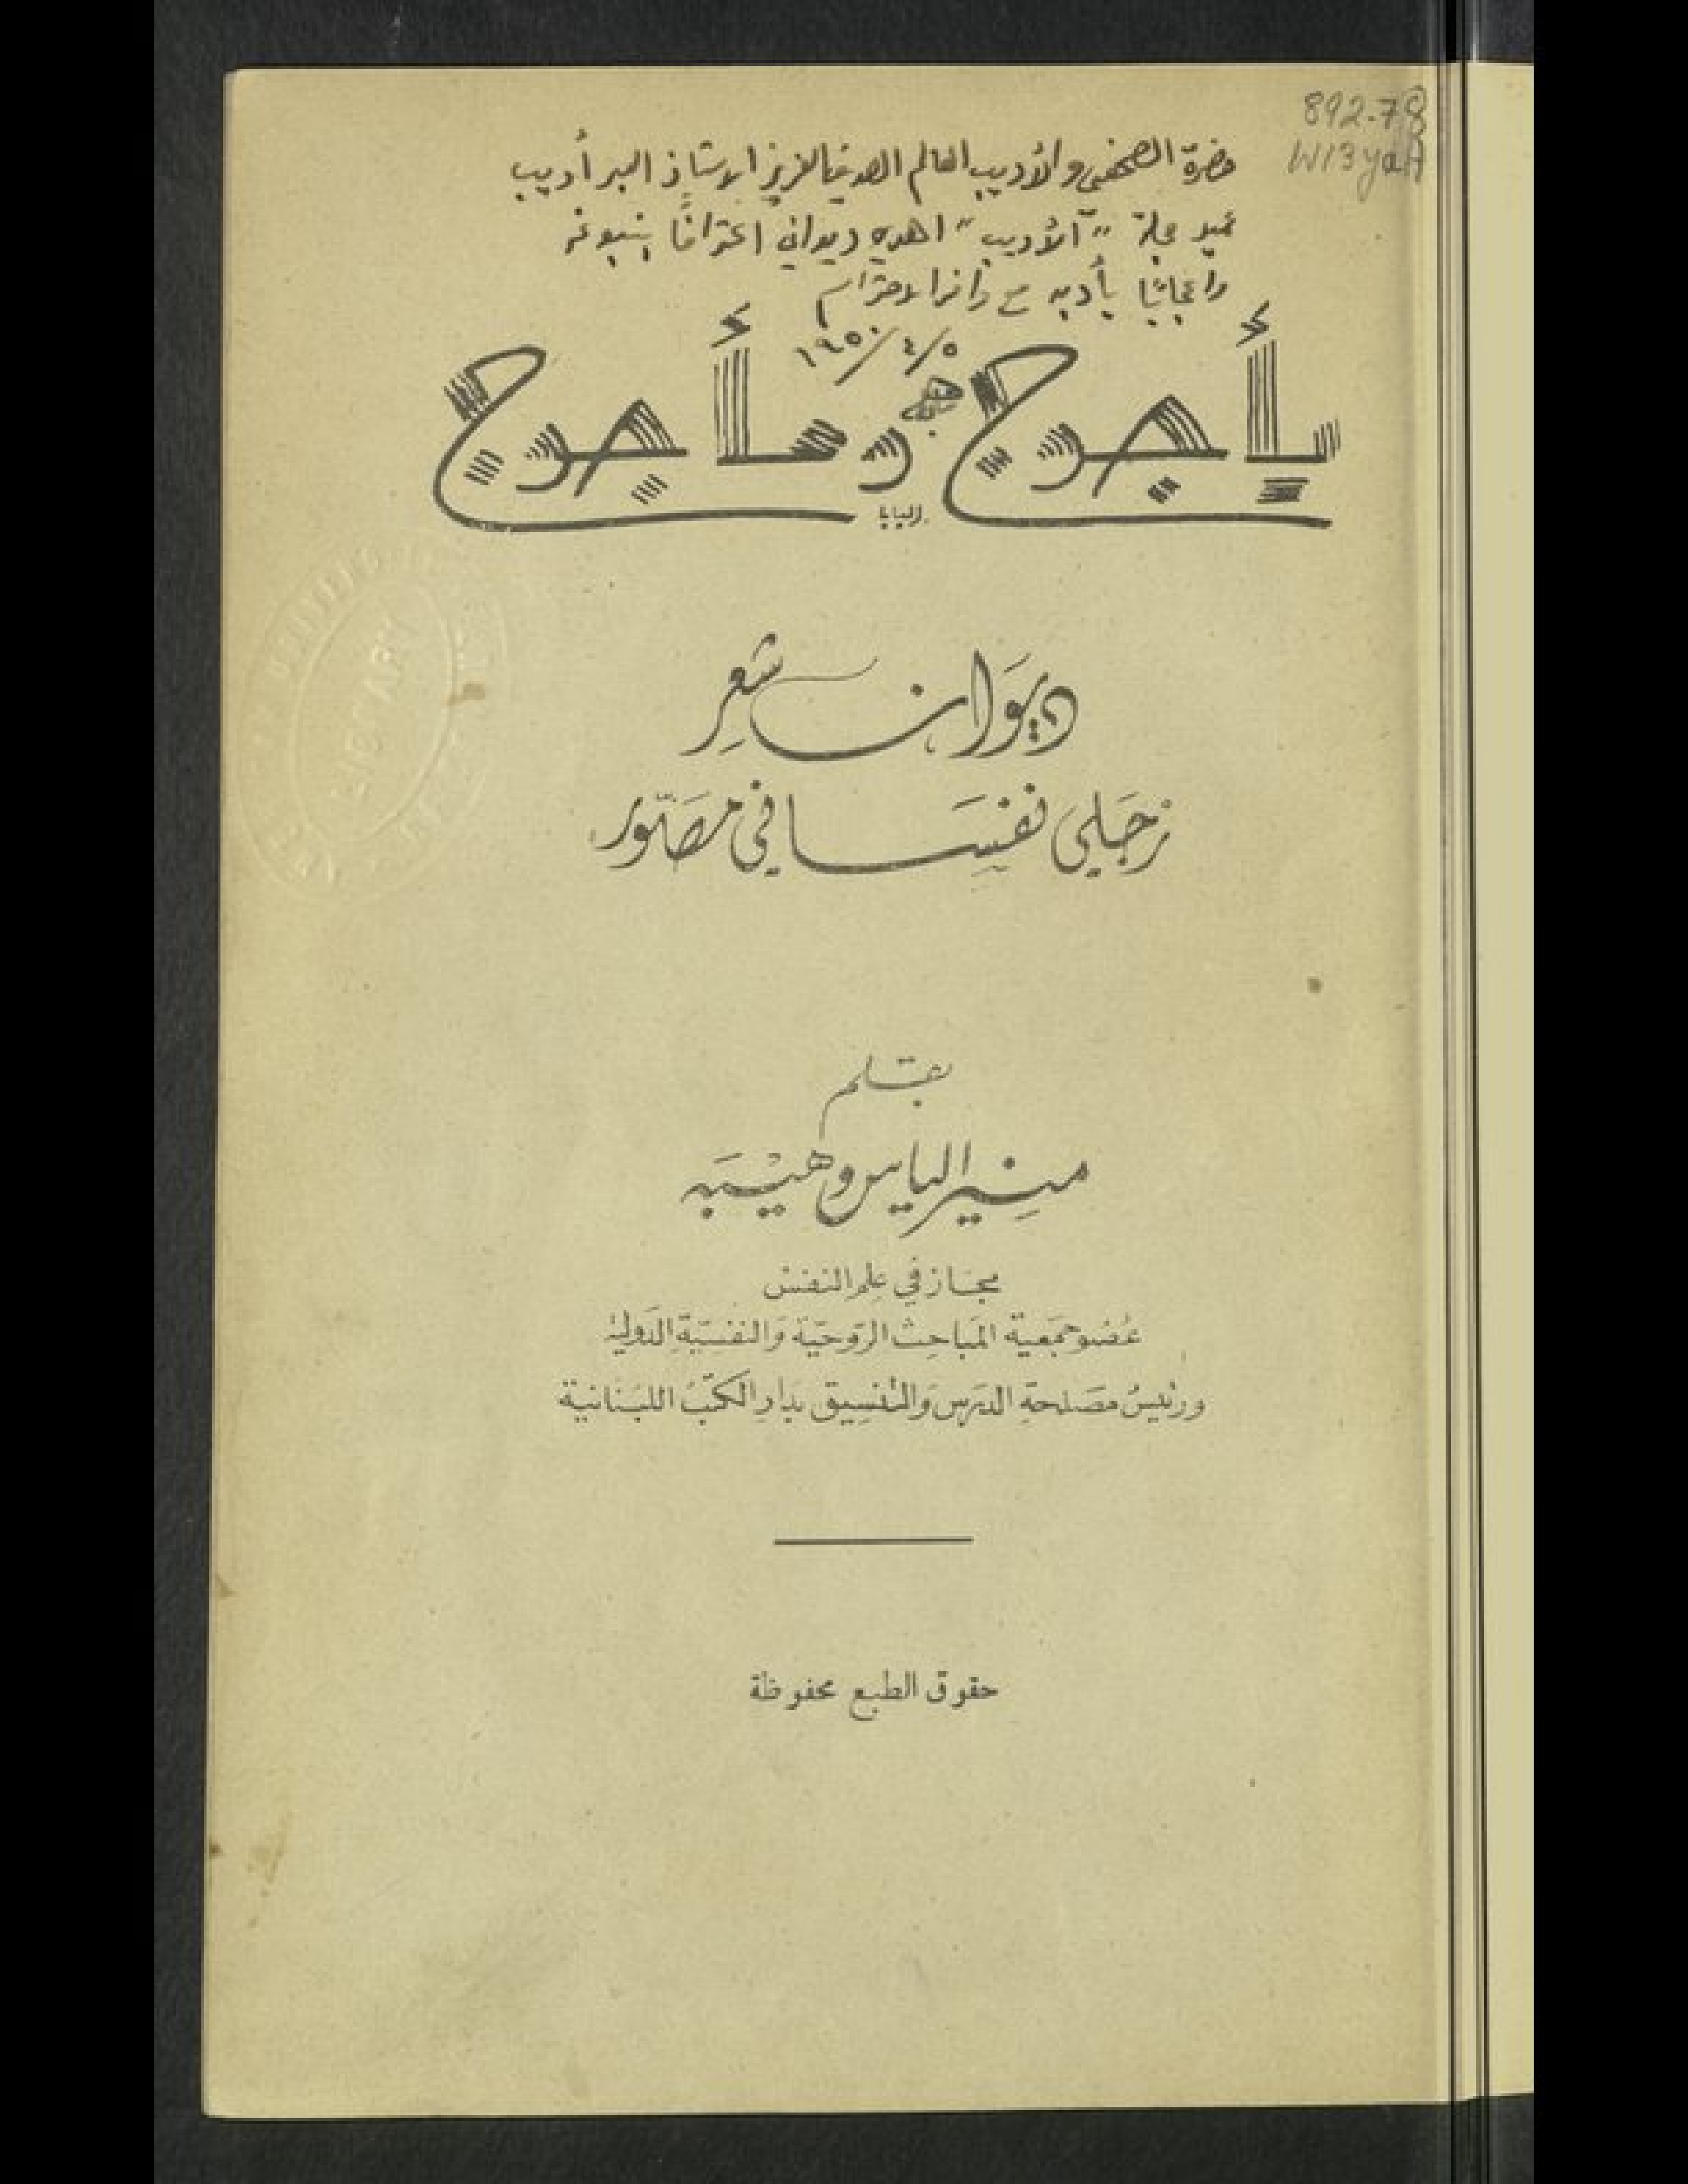 892.78
W13yaA
حضرة الصحفي والأديب العالم الصديق العزيز الاستاذ البير أديب
عميد مجلة "الأديب" اهدي ديواني اعترافًا بنبوغه
واعجابًا بأدبه مع وافر الاحترام
١٩٥٠/٤/٥
يأجوج ومأجوج
ديوان شعر
زجلي نفساني مصَوّر
بقلم
منير الياس وهيبه
مجاز في علم النفس
عضو جمعية المباحث الروحية والنفسية الدولية
ورئيس مصلحة الدرس والتنسيق بدار الكتب اللبنانية
حقوق الطبع محفوظة